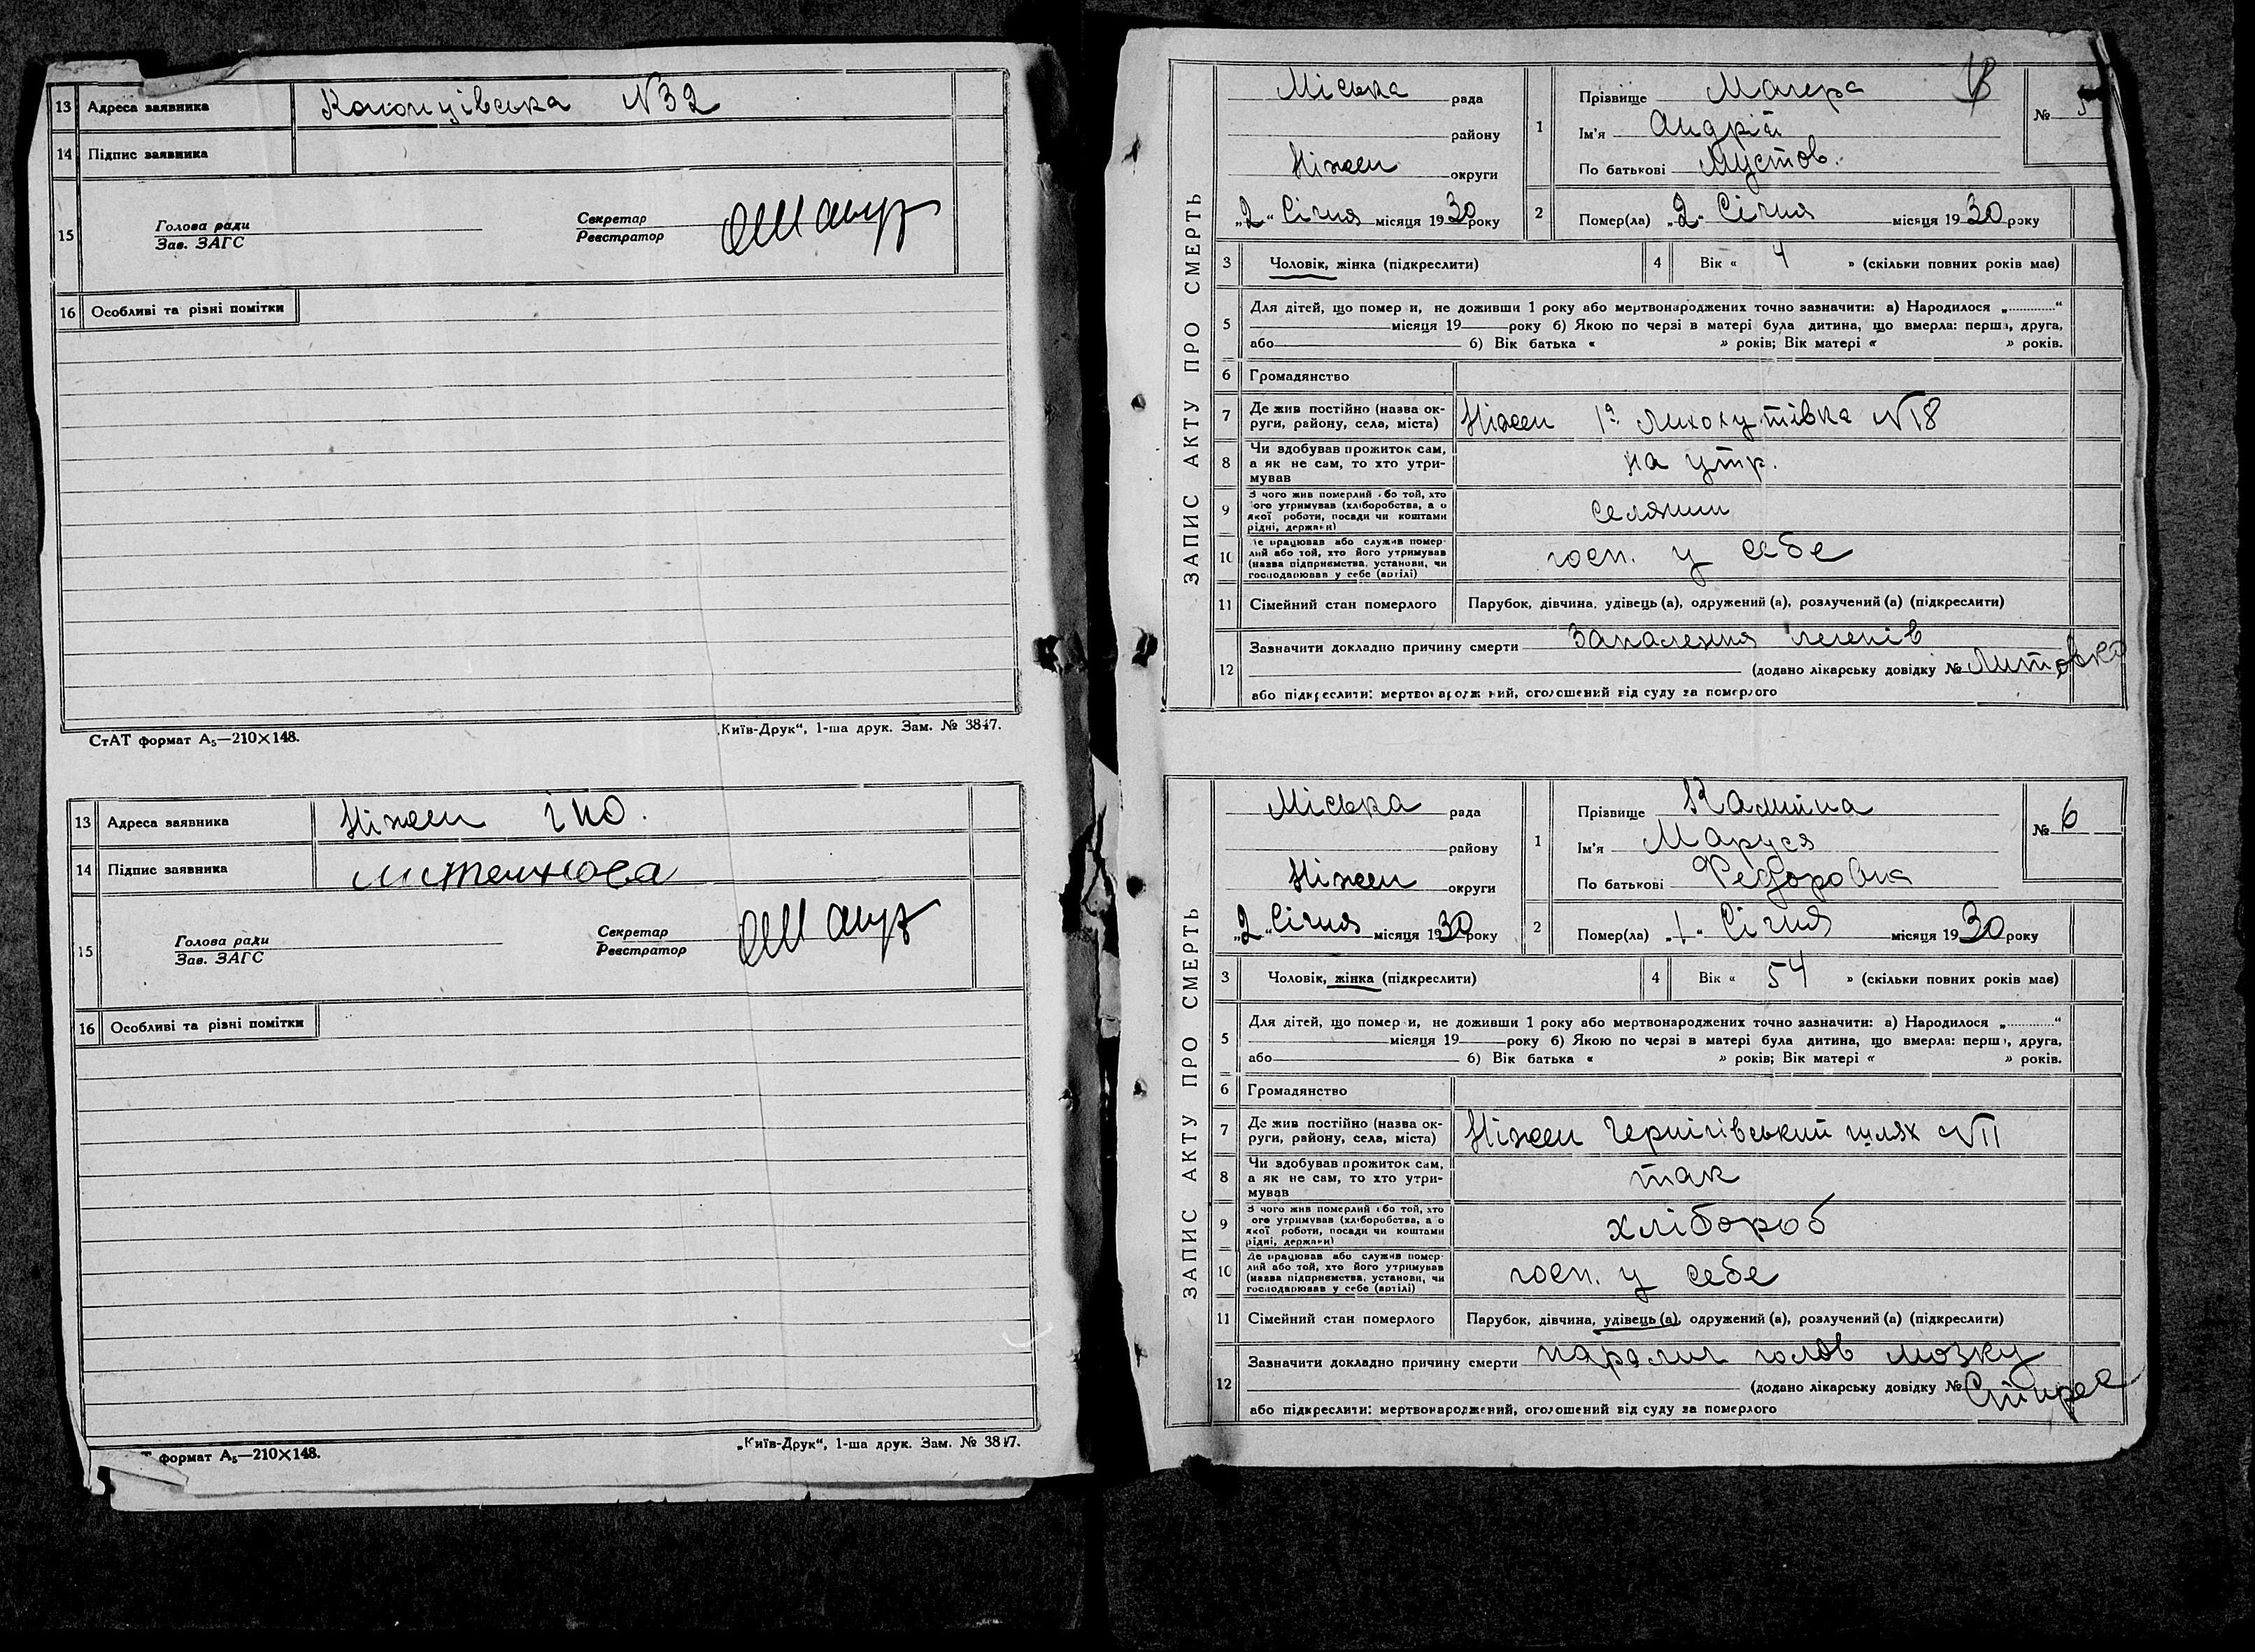 13 Адреса заявника Кононцівська N32
14 Підпис заявника
15 Голова ради Секретар
Зав. ЗАГС Реєстратор
16 Особливі та різні помітки
СтАТ формат А₅—210×148. „Київ-Друк“, 1-ша друк. Зам. № 3847.
13 Адреса заявника Ніжен ІНО.
14 Підпис заявника
15 Голова ради Секретар
Зав. ЗАГС Реєстратор
16 Особливі та різні помітки
формат А₅—210×148. „Київ-Друк“, 1-ша друк. Зам. № 3847.
ЗАПИС АКТУ ПРО СМЕРТЬ
Міська рада
району
Ніжен округи
„2“ Січня місяця 1930 року
1 Прізвище Магера
Ім'я Андрій
По батькові Мустов.
№ 5
2 Помер(ла) „2“ Січня місяця 1930 року
3 Чоловік, жінка (підкреслити) 4 Вік « 4 » (скільки повних років має)
5 Для дітей, що помер и, не доживши 1 року або мертвонароджених точно зазначити: а) Народилося „............“
місяця 19 року б) Якою по черзі в матері була дитина, що вмерла: перша, друга,
або б) Вік батька « » років; Вік матері « » років.
6 Громадянство
7 Де жив постійно (назва ок-
руги, району, села, міста) Ніжен 1а Лихохутівка N18
8 Чи здобував прожиток сам,
а як не сам, то хто утри-
мував на утр.
9 З чого жив померлий або той, хто
ого утримував (хліборобства, а о
якої роботи, посади чи коштами
рідні, держави) селянин
10 Де працював або служив помер-
лий або той, хто його утримував
(назва підприємства, установи, чи
господарював у себе (артілі) госп. у себе
11 Сімейний стан померлого Парубок, дівчина, удівець (а), одружений (а), розлучений (а) (підкреслити)
12 Зазначити докладно причину смерти Запалення легенів
(додано лікарську довідку № Литовка
або підкреслити: мертвонароджений, оголошений від суду за померлого
ЗАПИС АКТУ ПРО СМЕРТЬ
Міська рада
району
Ніжен округи
„2“ Січня місяця 1930 року
1 Прізвище Калита
Ім'я Маруся
По батькові Федоровна
№ 6
2 Помер(ла) „1“ Січня місяця 1930 року
3 Чоловік, жінка (підкреслити) 4 Вік « 54 » (скільки повних років має)
5 Для дітей, що помер и, не доживши 1 року або мертвонароджених точно зазначити: а) Народилося „............“
місяця 19 року б) Якою по черзі в матері була дитина, що вмерла: перша, друга,
або б) Вік батька « » років; Вік матері « » років.
6 Громадянство
7 Де жив постійно (назва ок-
руги, району, села, міста) Ніжен Чернігівський шлях N11
8 Чи здобував прожиток сам,
а як не сам, то хто утри-
мував так
9 З чого жив померлий або той, хто
ого утримував (хліборобства, а о
якої роботи, посади чи коштами
рідні, держави) хлібороб
10 Де працював або служив помер-
лий або той, хто його утримував
(назва підприємства, установи, чи
господарював у себе (артілі) госп. у себе
11 Сімейний стан померлого Парубок, дівчина, удівець (а), одружений (а), розлучений (а) (підкреслити)
12 Зазначити докладно причину смерти параліч голов мозку
(додано лікарську довідку №
або підкреслити: мертвонароджений, оголошений від суду за померлого